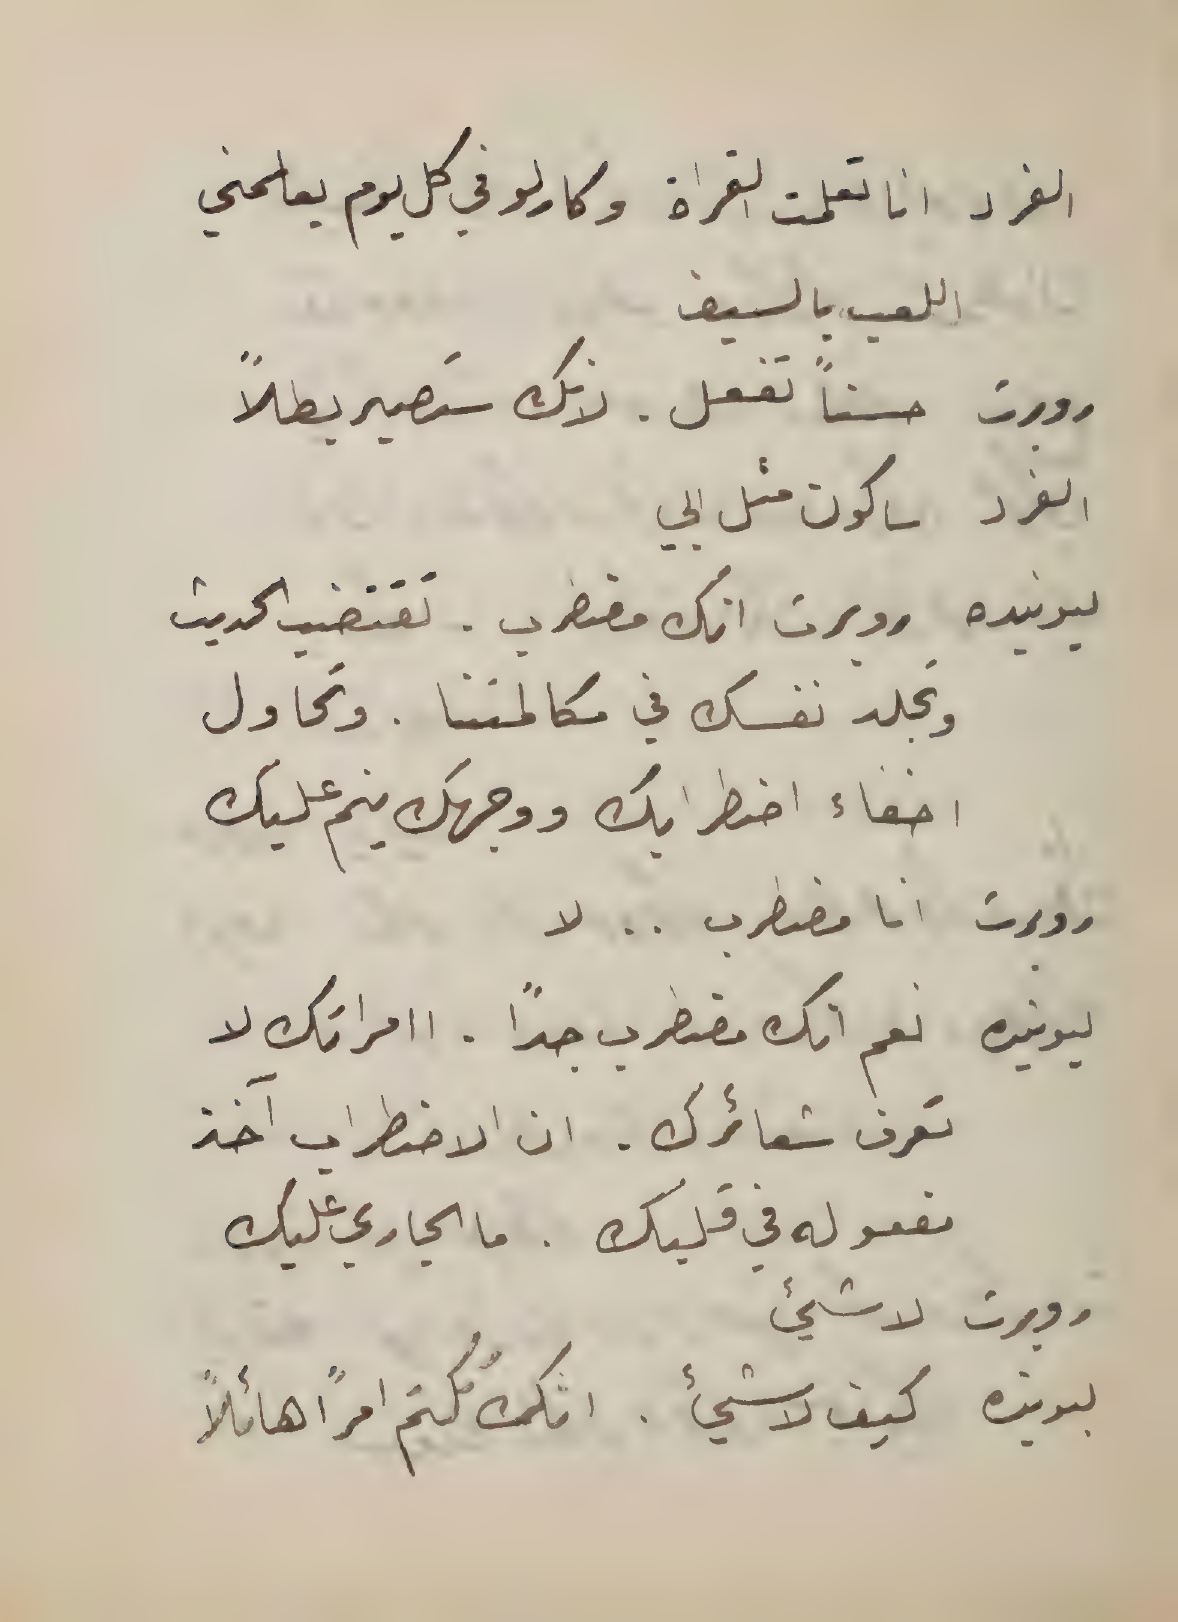 الفرد انا تعلمت القراة وكارلو في كل يوم يعالمني
اللعب بالسيف
روبرت حسناً تفعل . لانك ستصير بطلاً
الفرد ساكون مثل ابي
ليونيده روبرت انك مضطرب . تقتضب الحديث
وتجلد نفسك في مكالمتنا . وتحاول
اخفاء اضطرابك ووجهك ينم عليك
روبرت انا مضطرب .. لا
ليونيده نعم انك مضطرب جداً . اامراتك لا
تعرف شعائرك . ان الاضطراب آخذ
مفعوله في قلبك . ما الجاري عليك
روبرت لا شيئ
ليونيده كيف لا شيئ . انك تكتم امراً هائلاً